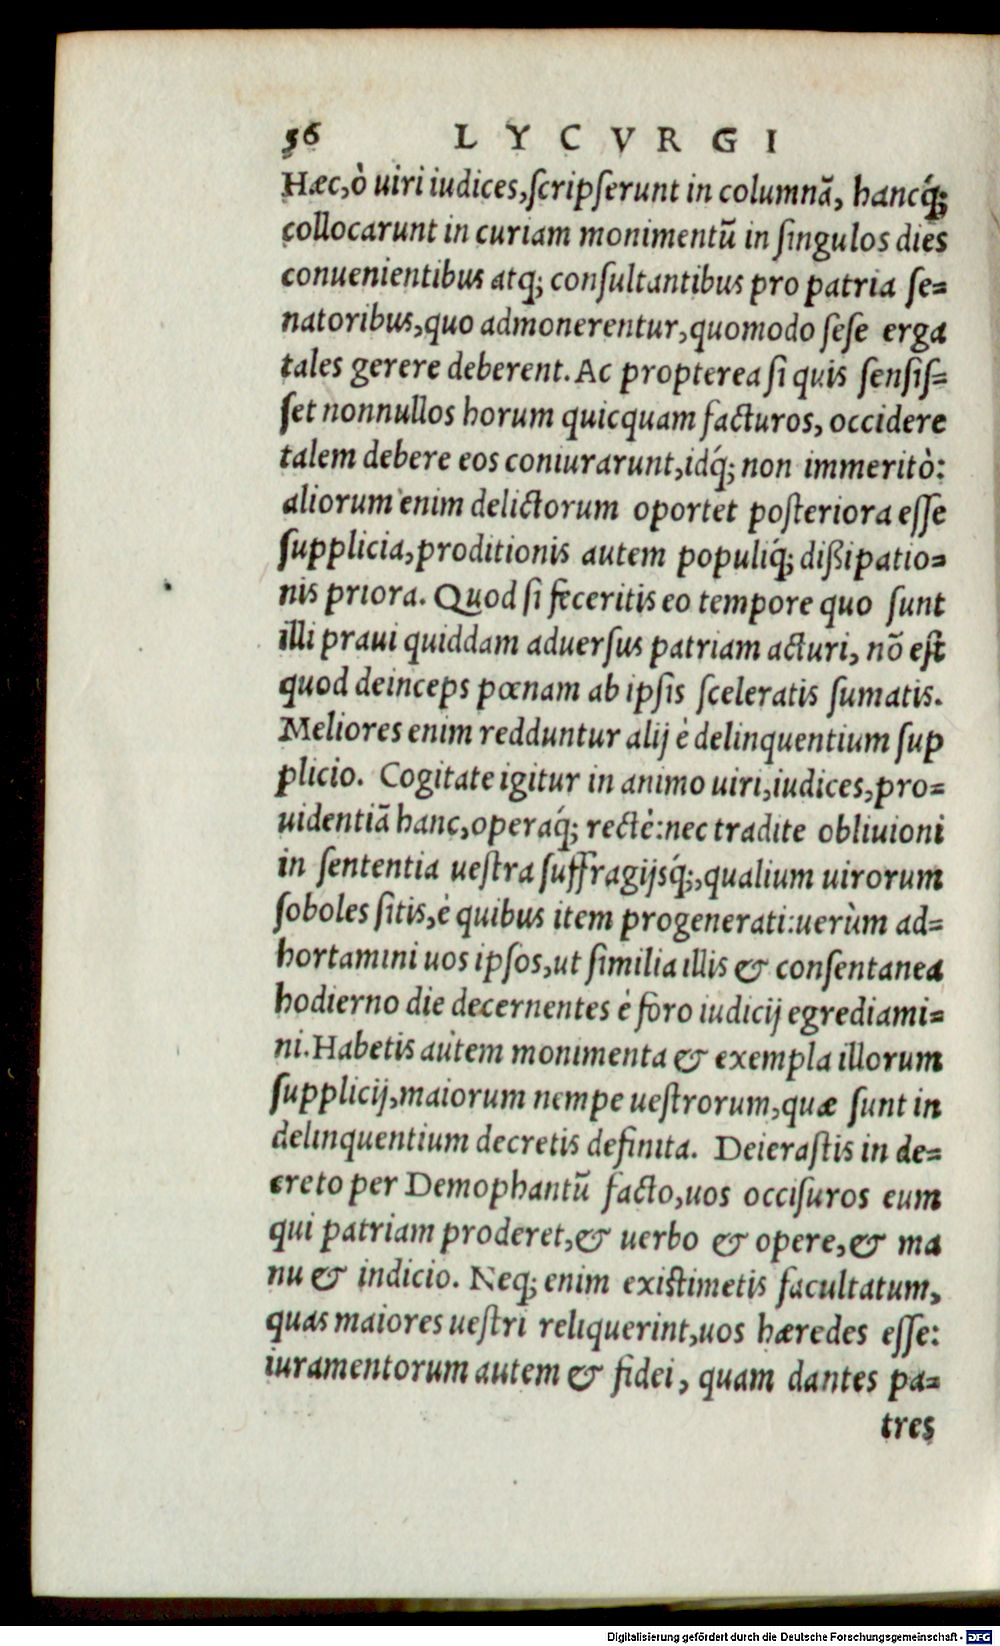 56 LYCVRGI
Hæc,ò uiri iudices,scripserunt in columnã, hancq́;
collocarunt in curiam monimentũ in singulos dies
conuenientibus atq; consultantibus pro patria se=
natoribus,quo admonerentur,quomodo sese erga
tales gerere deberent. Ac propterea si quis sensis=
set nonnullos horum quicquam facturos, occidere
talem debere eos coniurarunt,idq́; non immeritò:
aliorum enim delictorum oportet posteriora esse
supplicia,proditionis autem populiq́; dißipatio=
nis priora. Quod si feceritis eo tempore quo sunt
illi praui quiddam aduersus patriam acturi, nõ est
quod deinceps pœnam ab ipsis sceleratis sumatis.
Meliores enim redduntur alij è delinquentium sup
plicio. Cogitate igitur in animo uiri,iudices,pro=
uidentiã hanc,operaq́; rectè:nec tradite obliuioni
in sententia uestra suffragijsq́;,qualium uirorum
soboles sitis,è quibus item progenerati:uerùm ad=
hortamini uos ipsos,ut similia illis & consentanea
hodierno die decernentes è foro iudicij egrediami=
ni.Habetis autem monimenta & exempla illorum
supplicij,maiorum nempe uestrorum,quæ sunt in
delinquentium decretis definita. Deierastis in de=
creto per Demophantũ facto,uos occisuros eum
qui patriam proderet,& uerbo & opere,& ma
nu & indicio. Neq; enim existimetis facultatum,
quas maiores uestri reliquerint,uos hæredes esse:
iuramentorum autem & fidei, quam dantes pa=
tres
Digitalisierung gefördert durch die Deutsche Forschungsgemeinschaft - DFG